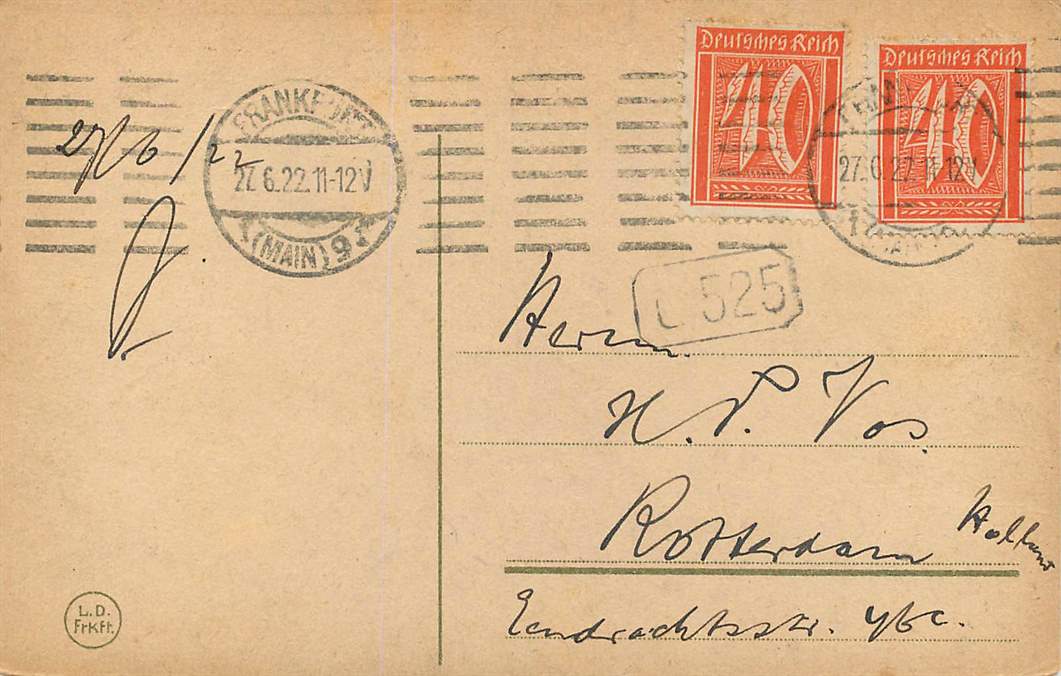 Deutsches Reich
40
Deutsches Reich
40
FRANKFURT
27.6.22.11-12V
(MAIN) 9
27.6.22.11-12V
27/6/22
525
Herrn
H. P. Vos
Rotterdam Holland
Eendrachtsstr.
L.D.
Frkft.